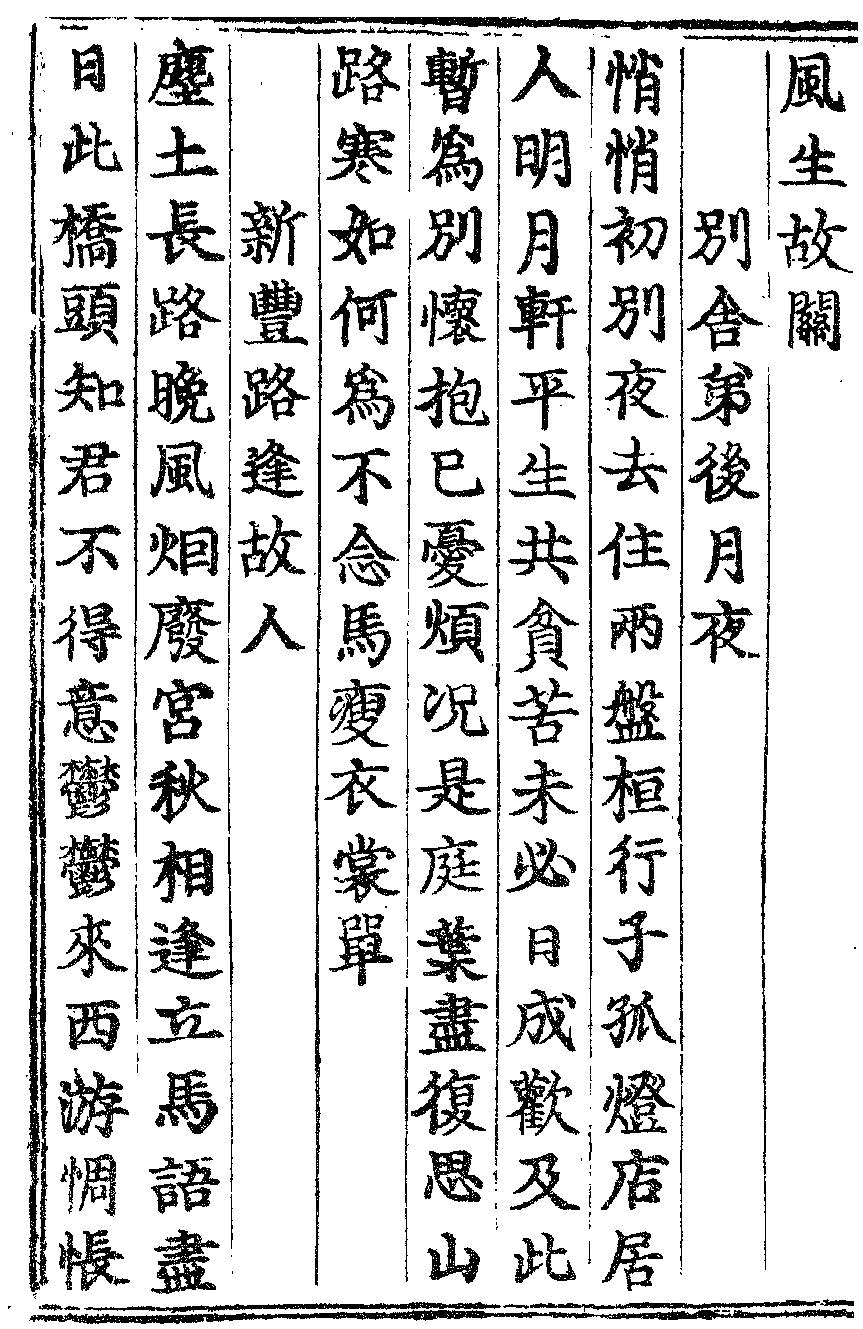 風生故關
別舍弟後月夜
悄悄初別夜去住兩盤桓行子孤燈店居
人明月軒平生共貧苦未必日成歡及此
暫爲別懷抱已憂煩况是庭葉盡復思山
路寒如何爲不念馬瘦衣裳單
新豐路逢故人
塵土長路晚風烟廢宮秋相逢立馬語盡
日此橋頭知君不得意鬱鬱來西游惆悵